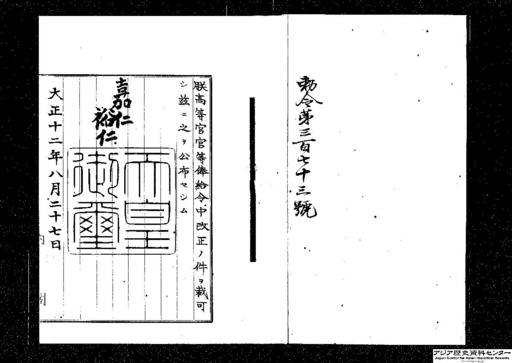 勅令第三百七十三號
朕高等官官等俸給令中改正ノ件ヲ裁可
シ茲ニ之ヲ公布セシム
嘉仁
裕仁
天皇
御璽
大正十二年八月二十七日
内
アジア歴史資料センター
Japan Center for Asian Historical Records